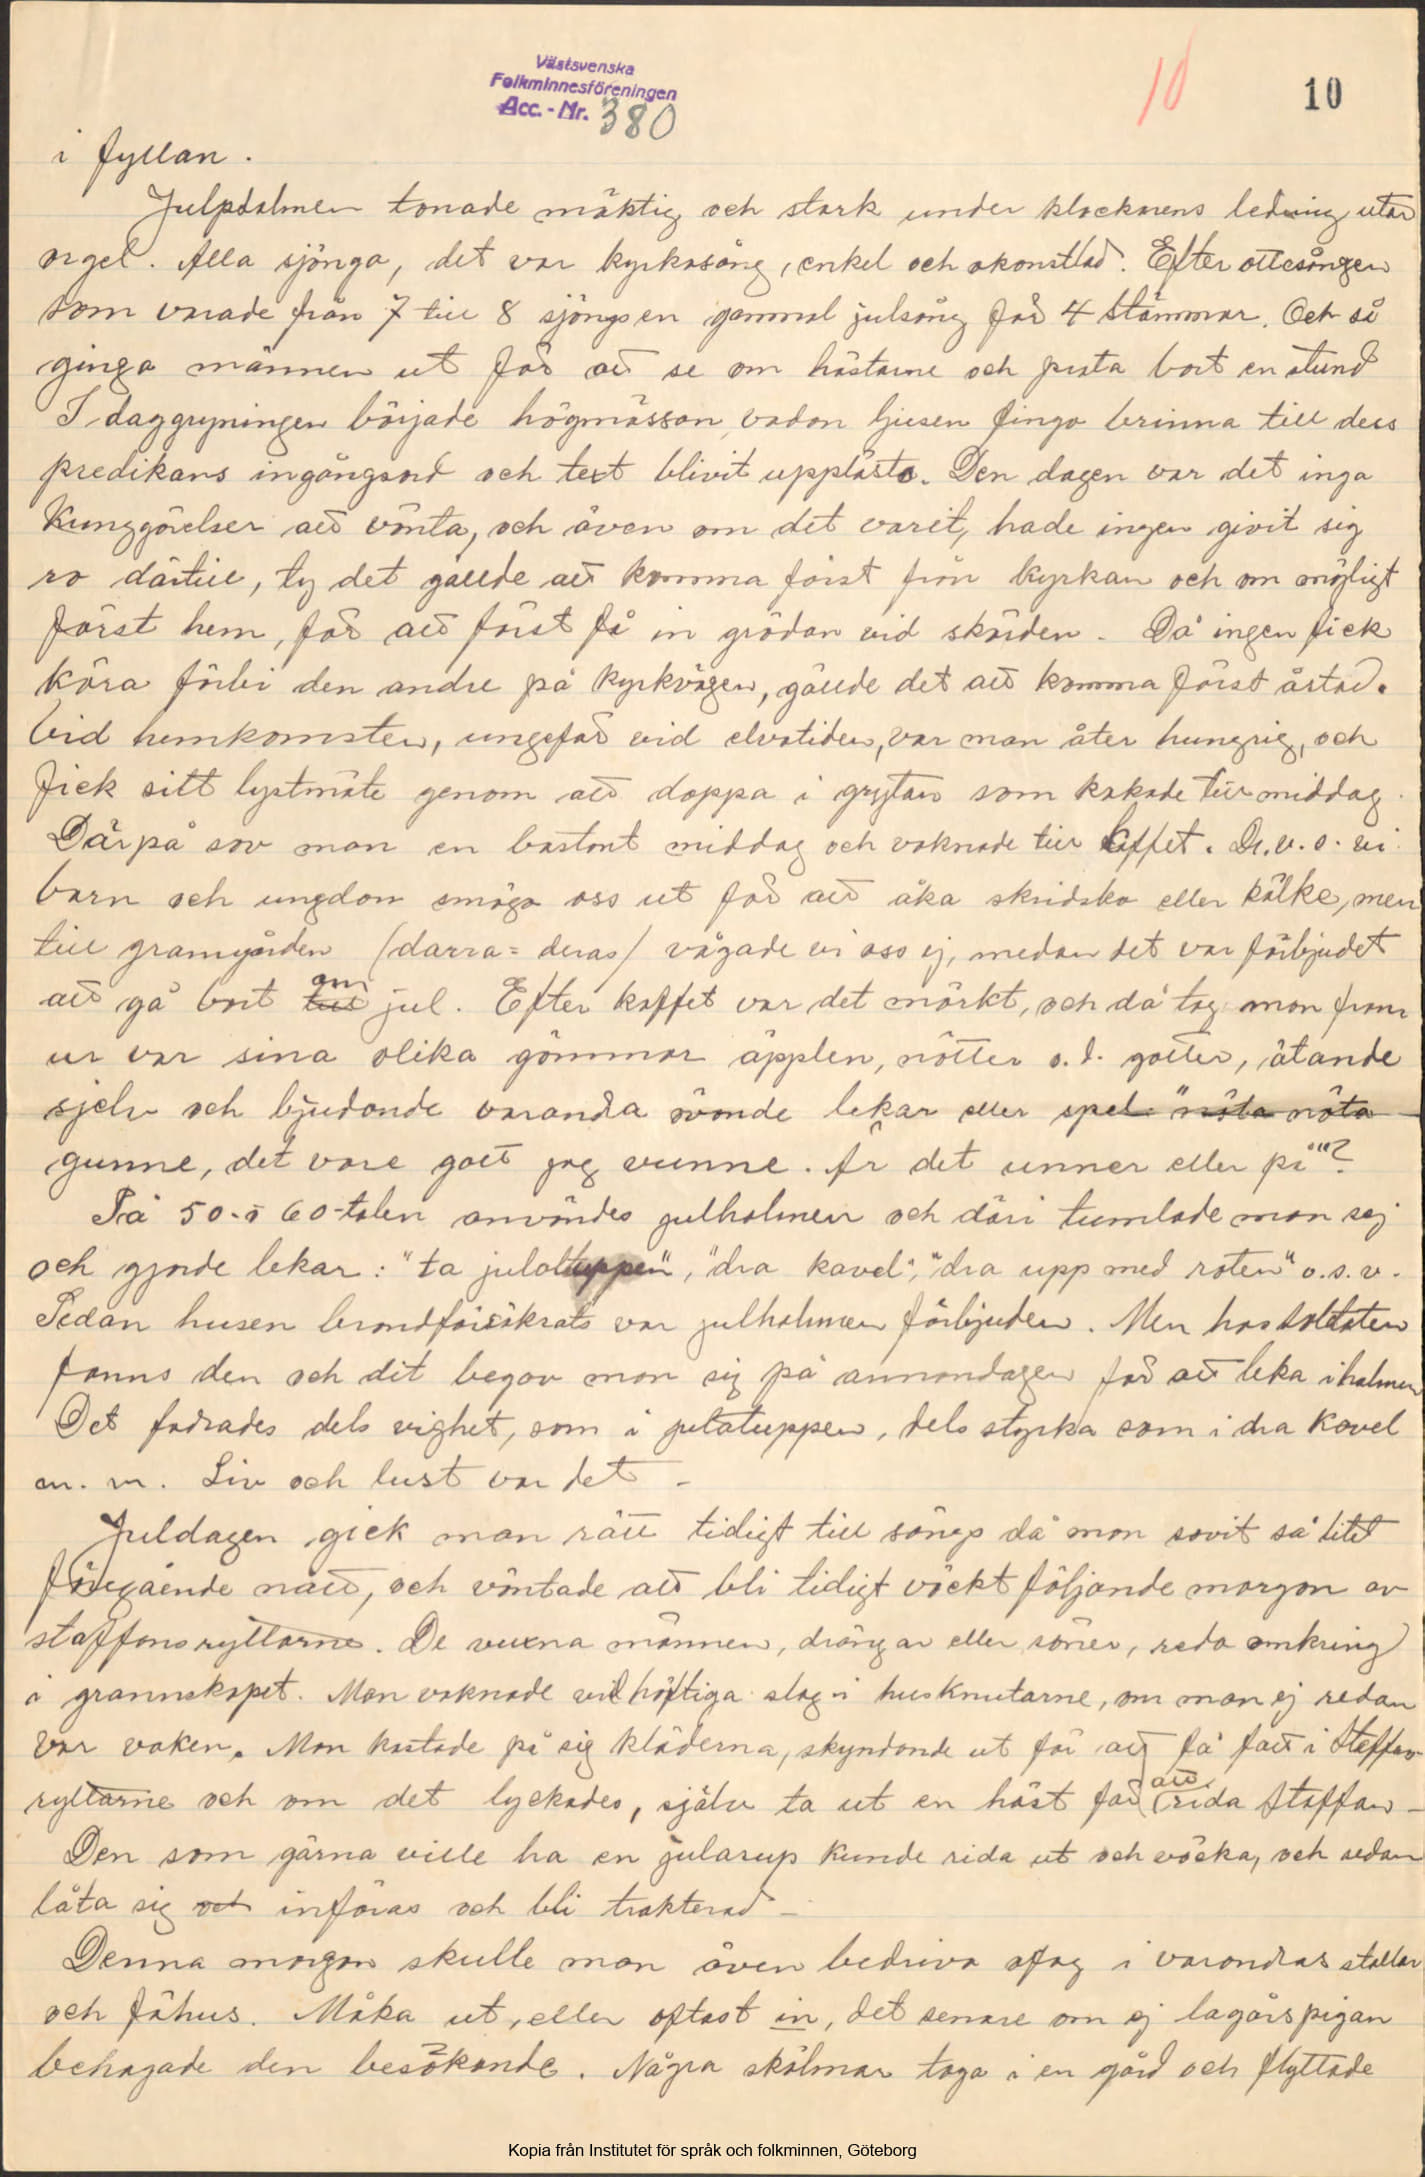 Västsvenska
Folkminnesföreningen
Acc.-Nr. 380
10
10
i fyllan.
Julpsalmen tonade mäktig och stark under klockarens ledning utan
orgel. Alla sjönga, det var kyrkosång, enkel och okonstlad. Efter ottesången
som varade från 7 till 8 sjöngs en gammal julsång för 4 stämmor. Och så
gingo männen ut för att se om hästarne och prata bort en stund
I daggryningen började högmässan, vadan ljusen fingo brinna till dess
predikans ingångsord och text blivit upplästa. Den dagen var det inga
Kungörelser att vänta, och även om det varit, hade ingen givit sig
ro därtill, ty det gällde att komma först från kyrkan och om möjligt
först hem, för att först få in grödan vid skörden. Då ingen fick
köra förbi den andre på kyrkvägen, gällde det att komma först åstad.
Vid hemkomsten, ungefär vid elvatiden, var man åter hungrig, och
fick sitt lystmäte genom att doppa i grytan som kokade till middag.
Därpå sov man en bastant middag och vaknade till kaffet. D.v.s. vi
barn och ungdom smögo oss ut för att åka skridsko eller kälke, men
till granngården (darra = deras) vågade vi oss ej, medan det var förbjudet
att gå bort till om jul. Efter kaffet var det mörkt, och då tog man fram
ur var sina olika gömmor äpplen, nötter o.d. gotter, ätande
sjelv och bjudande varandra övande lekar eller spel "nöta nöta
gunne, det vore gott jag vunne. Är det unner eller på""?
På 50- à 60-talen användes julhalmen och däri tumlade man sej
och gjorde lekar: "ta jultuppen", "dra kavel", "dra upp med roten" o.s.v.
Sedan husen brandförsäkrats var julhalmen förbjuden. Men hos soldaten
fanns den och dit begav man sig på annandagen för att leka i halmen
Det fodrades dels vighet, som i julatuppen, dels styrka som i dra kavel
m. m. Liv och lust var det –
Juldagen gick man rätt tidigt till sängs då man sovit så litet
föregående natt, och väntade att bli tidigt väckt följande morgon av
staffansryttarne. De vuxna männen, drängar eller söner, redo omkring
i grannskapet. Man vaknade vid häftiga slag i husknutarne, om man ej redan
var vaken. Man kastade på sig kläderna, skyndande ut för att få fatt i Staffans-
ryttarne och om det lyckades, själv ta ut en häst för att rida Staffan –
Den som gärna ville ha en julasup kunde rida ut och väcka, och sedan
låta sig och införas och bli trakterad –
Denna morgon skulle man även bedriva ofog i varandras stallar
och fähus. Måka ut, eller oftast in, det senare om ej lagårspigan
behagade den besökande. Några skälmar togo i en gård och flyttade
Kopia från Institutet för språk och folkminnen, Göteborg